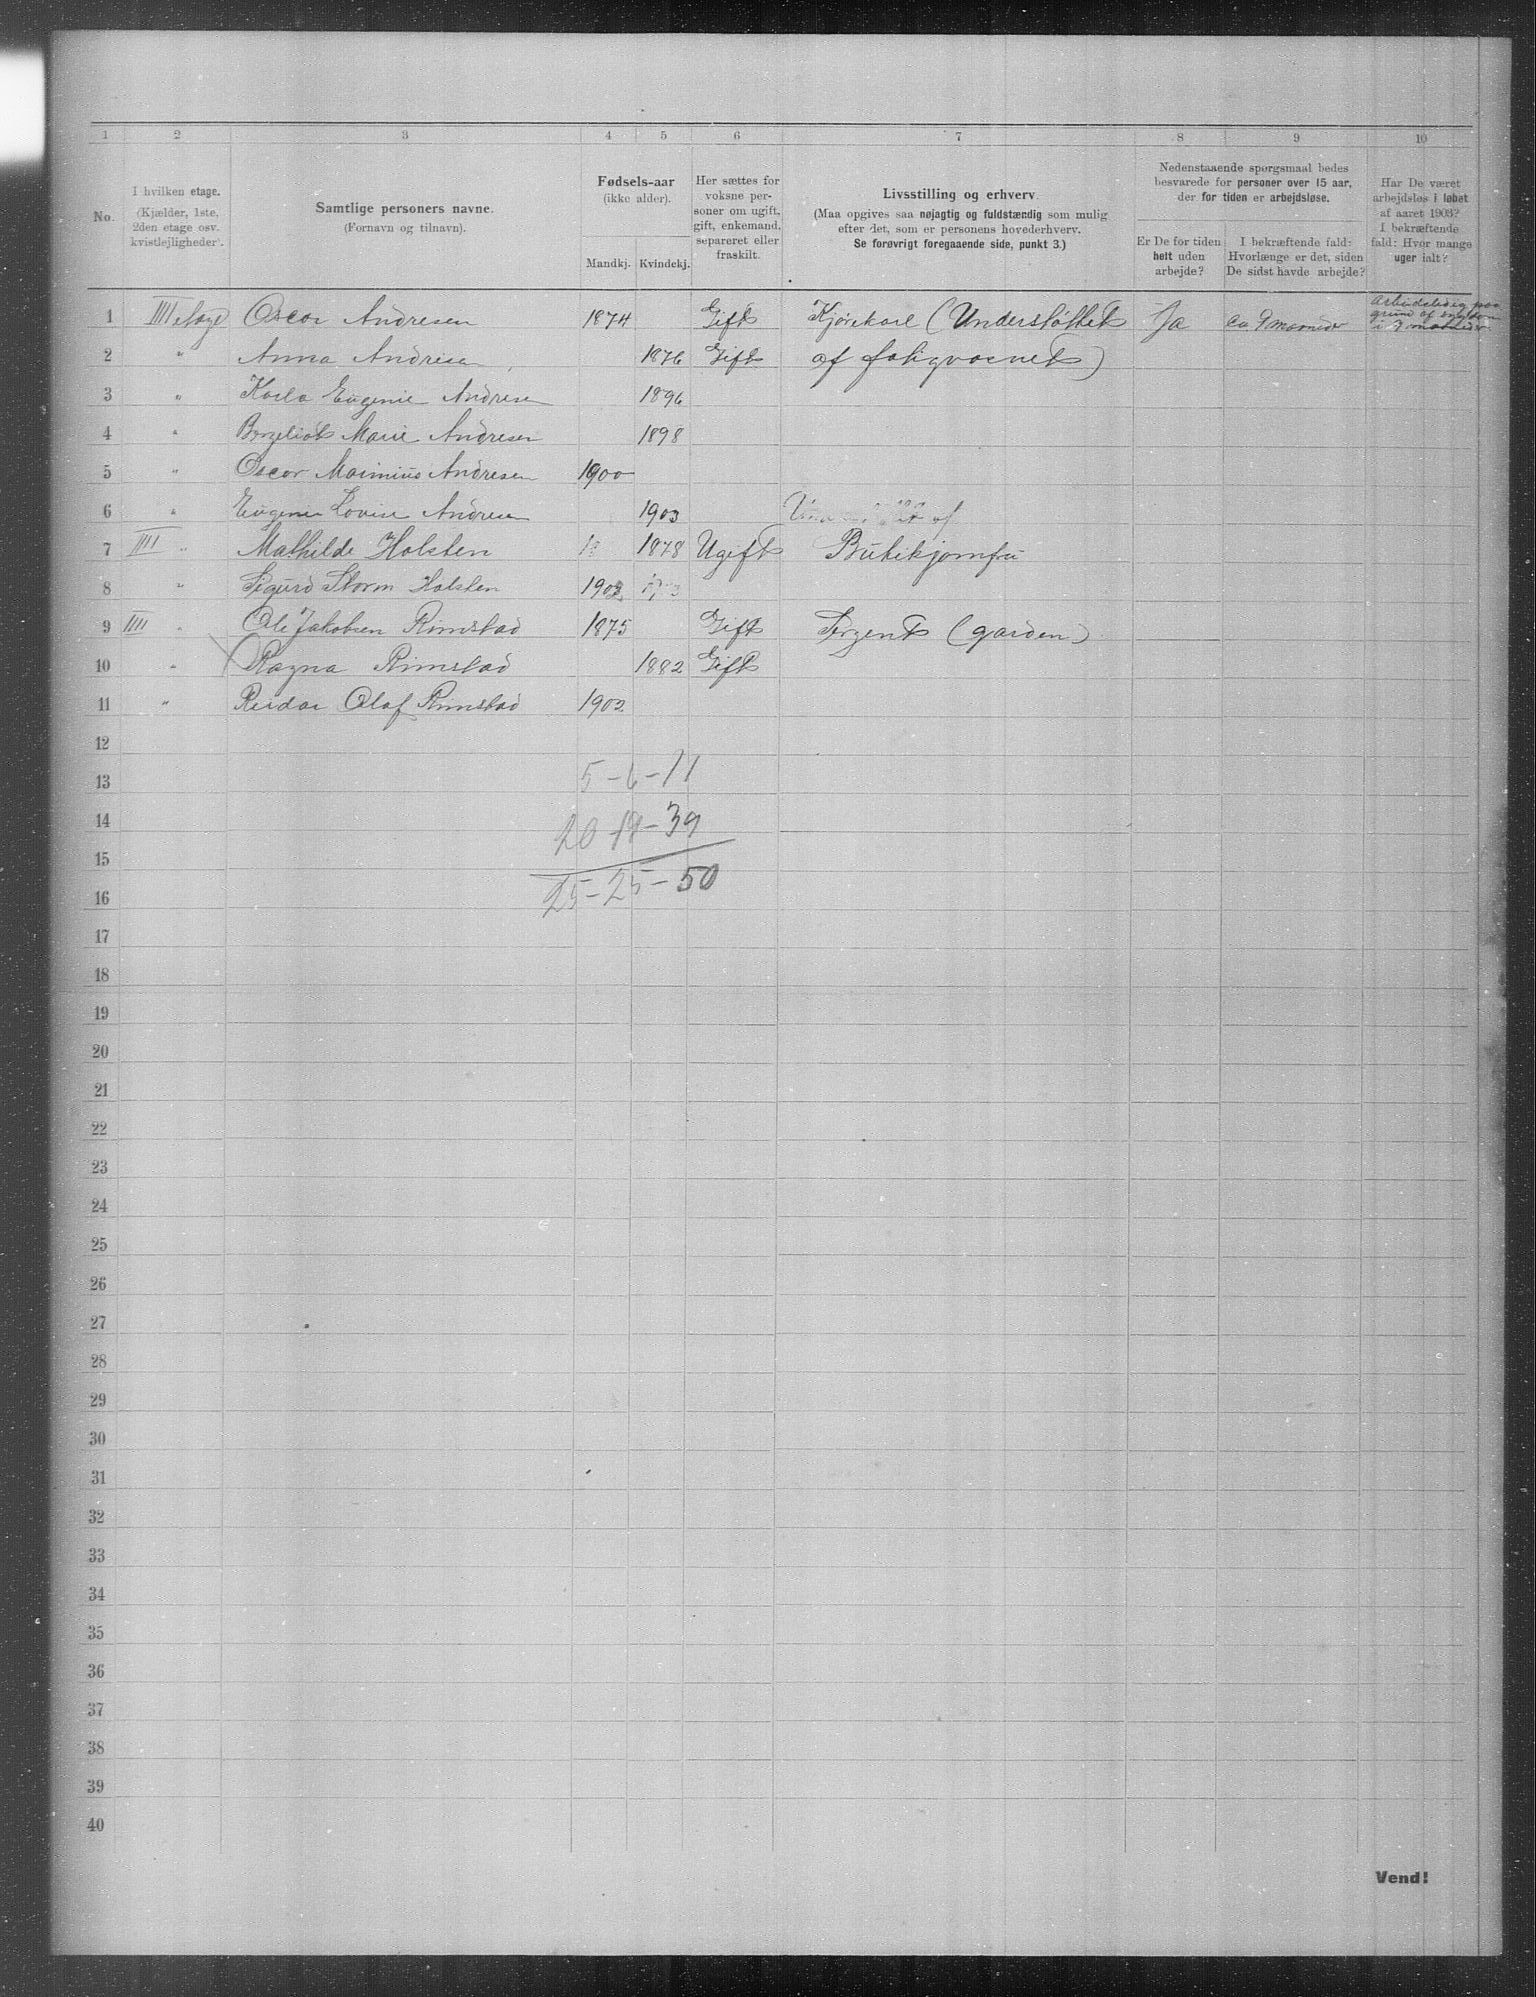 1 2 3 4 5 6 7 8 9 10
No.
I hvilken etage.
(Kjælder, 1ste,
2den etage osv.
kvistlejligheder).
Samtlige personers navne.
(Fornavn og tilnavn).
Fødsels-aar
(ikke alder).
Mandkj. Kvindekj.
Her sættes for
voksne per-
soner om ugift,
gift, enkemand,
separeret eller
fraskilt.
Livsstilling og erhverv.
(Maa opgives saa nøjagtig og fuldstændig som mulig
efter det, som er personens hovederhverv.
Se forøvrigt foregaaende side, punkt 3.)
Nedenstaaende spørgsmaal bedes
besvarede for personer over 15 aar,
der for tiden er arbejdsløse.
Er De for tiden
helt uden
arbejde?
I bekræftende fald:
Hvorlænge er det, siden
De sidst havde arbejde?
Har De været
arbejdsløs i løbet
af aaret 1903?
I bekræftende
fald: Hvor mange
uger ialt?
1 IIII etage Oscar Andresen 1874 Gift Kjørekarl (Understøttet Ja ca 9 maaneder Arbeidsledig paa
grund af
i 9 maaneder
2 " Anna Andresen 1876 Gift af fatigvæsnet)
3 " Karla Eugenie Andresen 1896
4 " Marie Andresen 1898
5 " Oscar Andresen 1900
6 " Eugenie Lovise Andresen 1903
7 III " Mathilde Holsten 1878 Ugift Butikjomfru
8 " Sigurd Storm Holsten 1903
9 IIII " Ole Jakobsen Rimstad 1875 Gift Sergent (garden)
10 " Ragna Rimstad 1882 Gift
11 " Reidar Olaf Rimstad 1902
12
13 5-6-11
14 20-19-39
15
16 25-25-50
17
18
19
20
21
22
23
24
25
26
27
28
29
30
31
32
33
34
35
36
37
38
39
40
Vend!